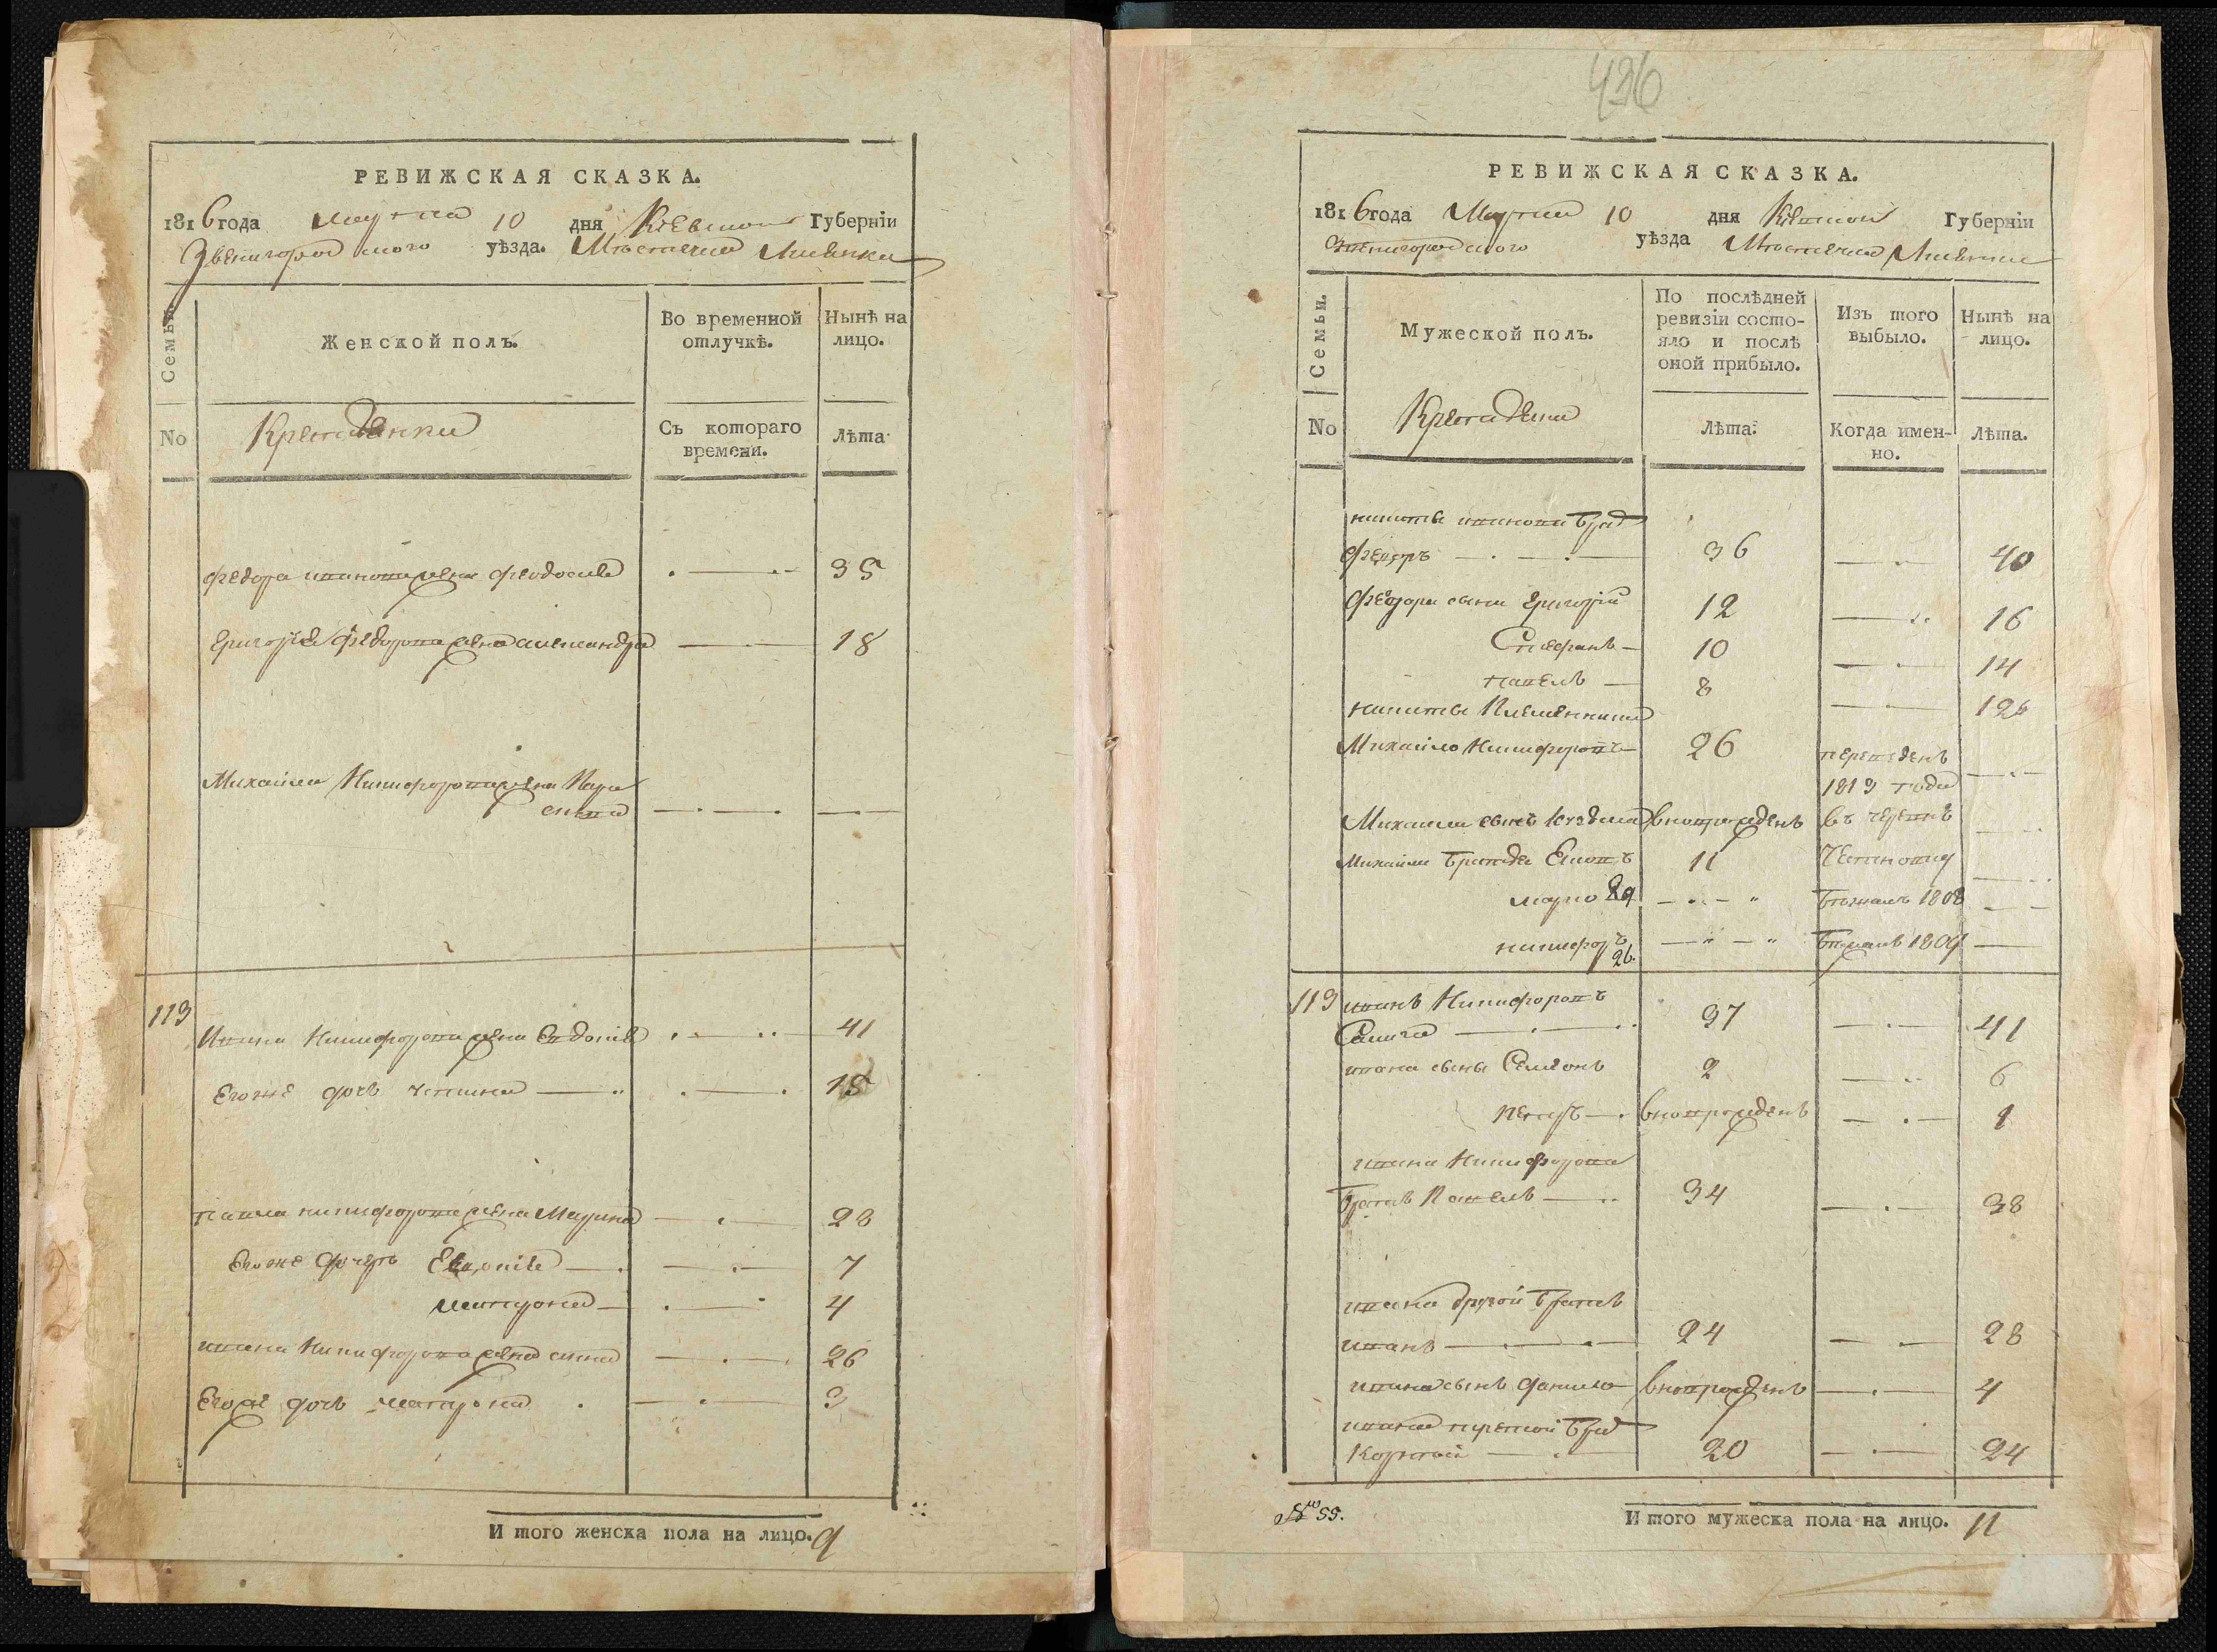 РЕВИЖСКАЯ СКАЗКА.
1816 года Марта 10 дня Кіевской Губерніи
Звенигородского уѣзда. Мѣстечка Лисянки
Семьи.
Женской полъ.
Во временной отлучкѣ.
Нынѣ на лицо.
No
Крестьянки
Съ котораго времени.
Лѣта
Федора иванова жена феодосия 35
Григория федорова жена александра 18
Михайла Никифорова жена Пара
скева
113
Ивана Никифорова жена Евдокия 41
Его же дочь 15
павла никифорова жена Марина 28
Его же дочерь 7
матрона 4
ивана Никифорова жена анна 26
Его же дочь матрона 3
И того женска пола на лицо. 9
426
РЕВИЖСКАЯ СКАЗКА.
1816 года Марта 10 дня Кіевской Губерніи
Звенигородского уѣзда Мѣстечка Лисянки
Семьи.
Мужеской полъ.
По послѣдней ревизіи состояло и послѣ оной прибыло.
Изъ того выбыло.
Нынѣ на лицо.
No
Крестьяни
Лѣта.
Когда именно.
Лѣта.
никиты иванова брат
федоръ 36 40
Федора сыни Григорій 12 16
Стефанъ 10 14
павелъ 8 12
никиты Племенники
Михайло Никифоровъ 26 переведенъ
1813 года
Михаила сынъ новорожденъ въ
Михайла братья 11
марко 29 бежалъ 1808
никифоръ 26 бежалъ 1809
113 иванъ Никифоровъ
37 41
ивана сыны Семионъ 2 6
петръ новорожденъ 1
ивана Никифорова
братъ Павелъ 34 38
ивана другой братъ
иванъ 24 28
ивана сынъ данило новорожденъ 4
ивана третой брат
Корнѣй 20 24
№ 55.
И того мужеска пола на лицо. 11